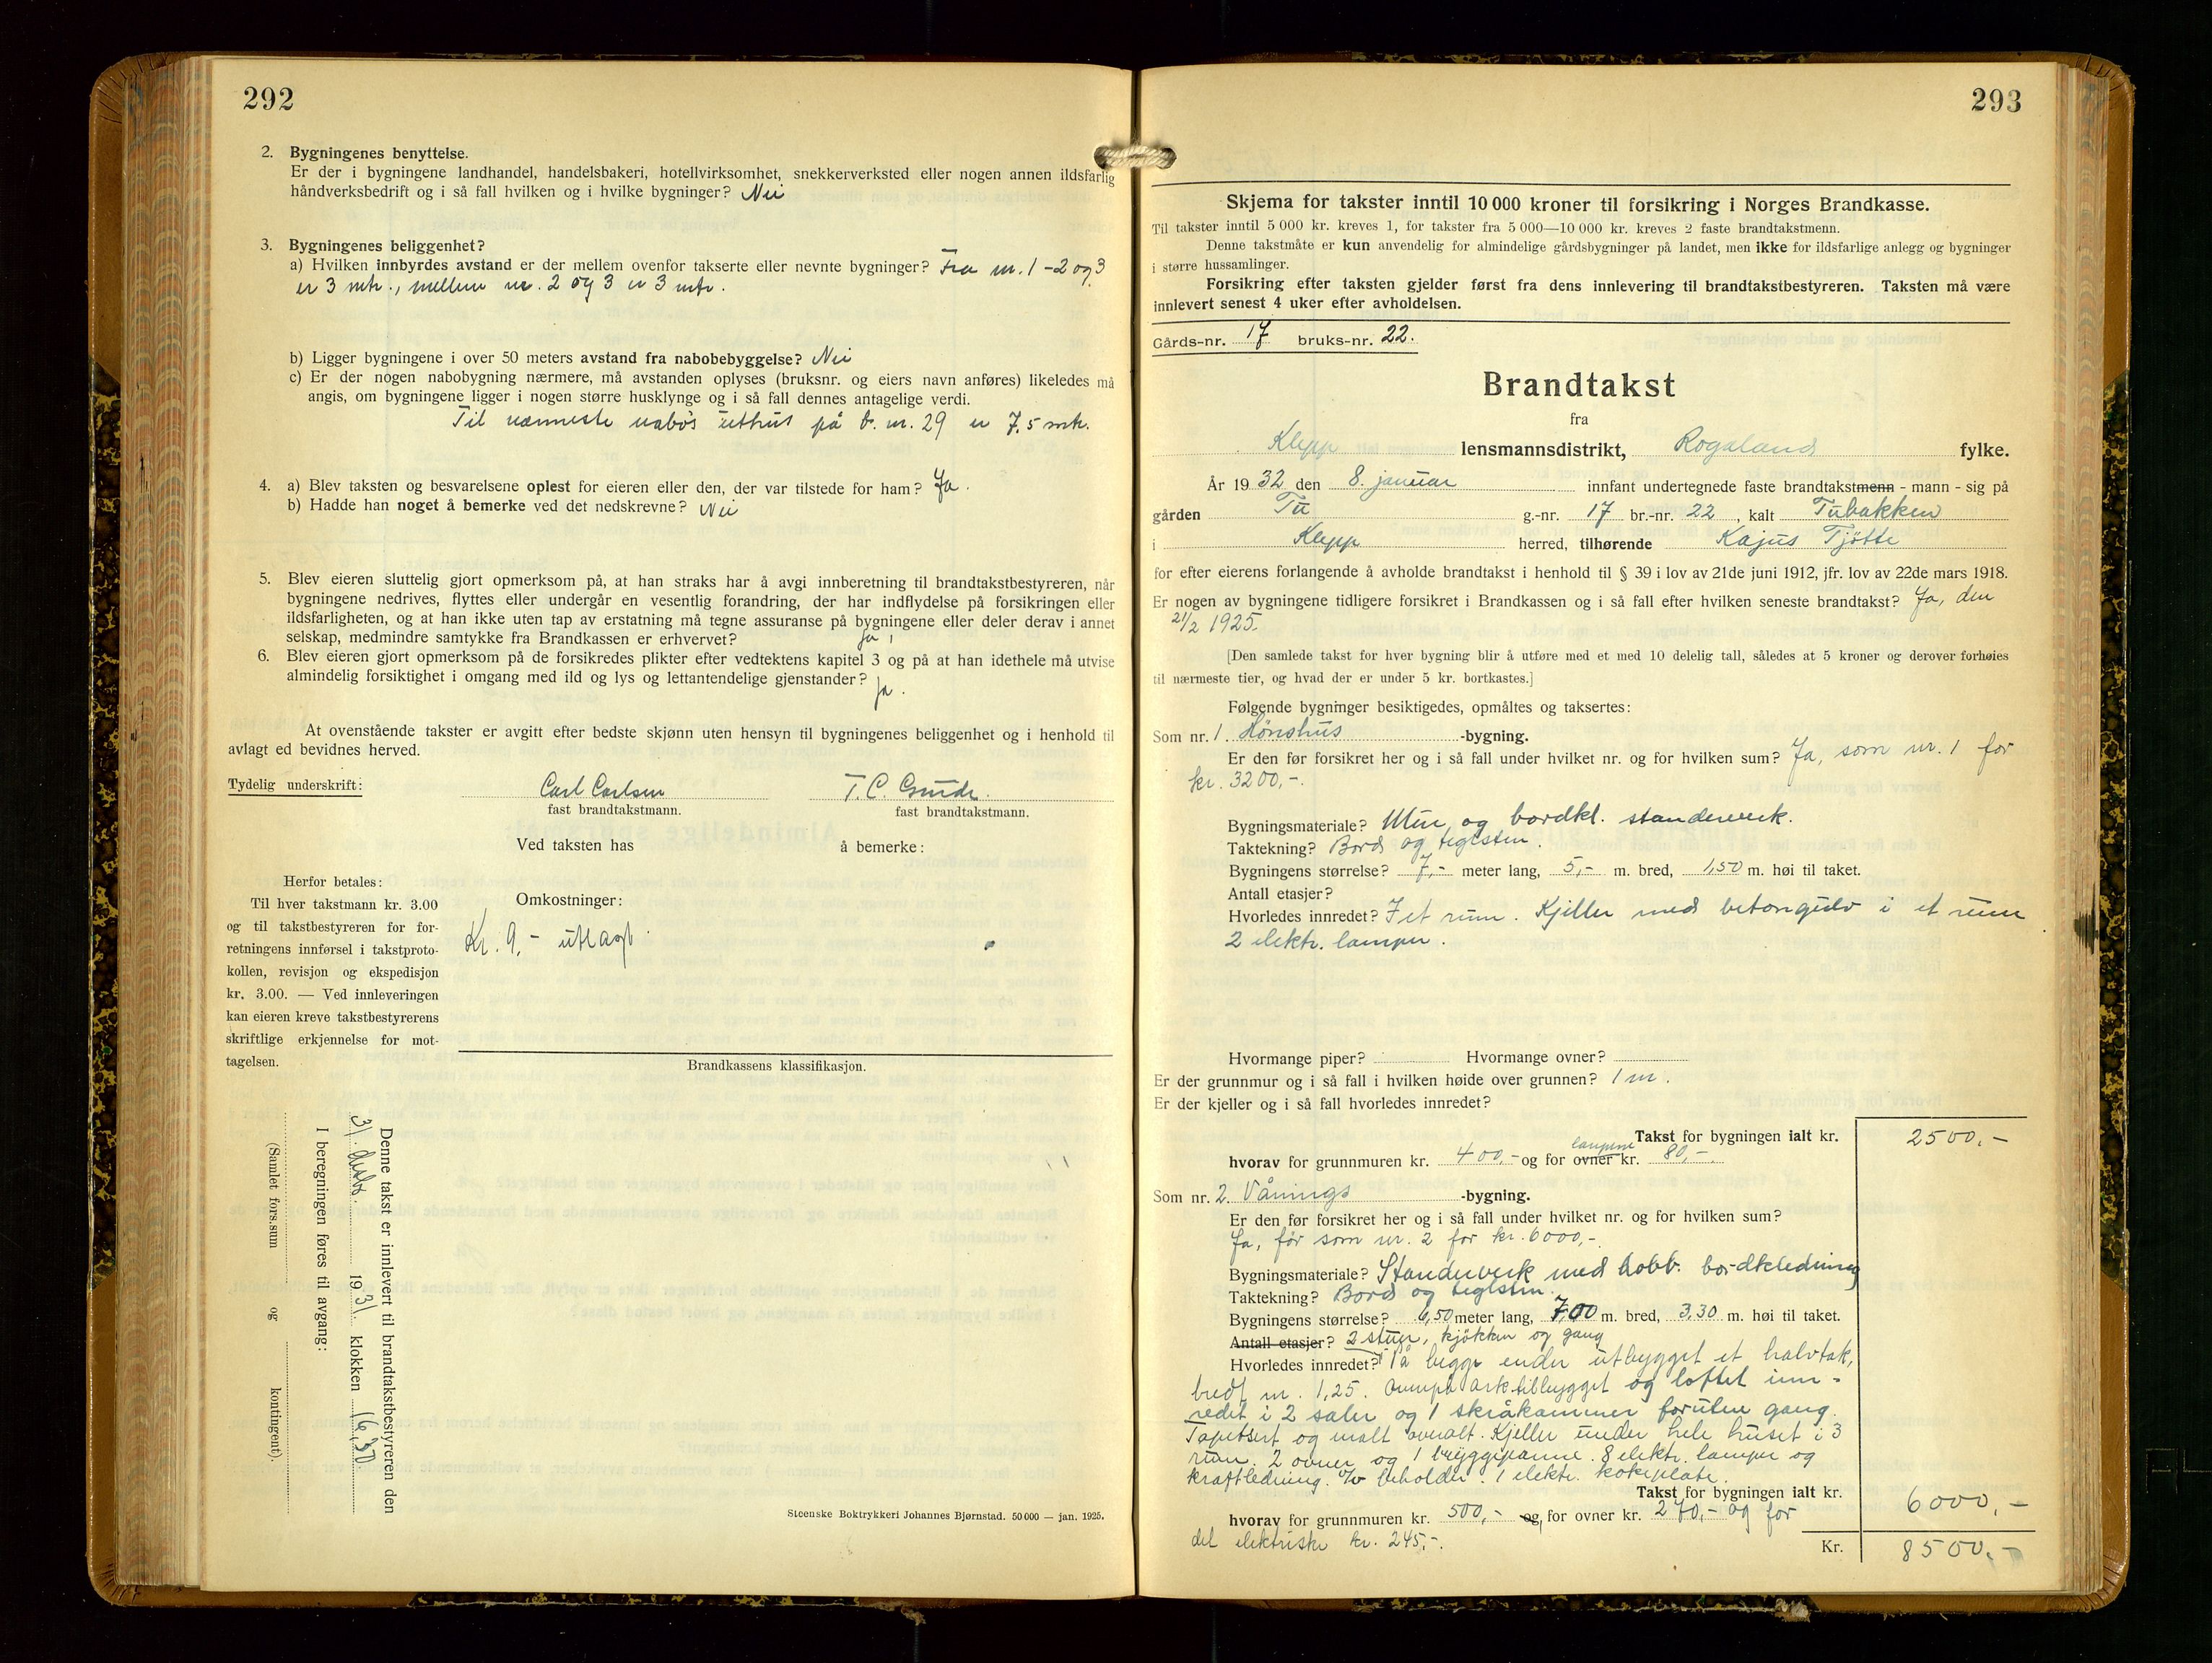 292
2. Bygningenes benyttelse.
Er der i bygningene landhandel, handelsbakeri, hotellvirksomhet, snekkerverksted eller nogen annen ildsfarlig
håndverksbedrift og i så fall hvilken og i hvilke bygninger? Nei
3. Bygningenes beliggenhet?
a) Hvilken innbyrdes avstand er der mellem ovenfor takserte eller nevnte bygninger? Fra nr. 1 - 2 og 3
er 3 mtr., mellem nr. 2 og 3 er 3 mtr.
b) Ligger bygningene i over 50 meters avstand fra nabobebyggelse? Nei
c) Er der nogen nabobygning nærmere, må avstanden oplyses (bruksnr. og eiers navn anføres) likeledes må
angis, om bygningene ligger i nogen større husklynge og i så fall dennes antagelige verdi.
Til nærmeste nabos uthus på b. nr. 29 er 7,5 mtr.
4. a) Blev taksten og besvarelsene oplest for eieren eller den, der var tilstede for ham? Ja.
b) Hadde han noget å bemerke ved det nedskrevne? Nei
5. Blev eieren sluttelig gjort opmerksom på, at han straks har å avgi innberetning til brandtakstbestyreren, når
bygningene nedrives, flyttes eller undergår en vesentlig forandring, der har indflydelse på forsikringen eller
ildsfarligheten, og at han ikke uten tap av erstatning må tegne assuranse på bygningene eller deler derav i annet
selskap, medmindre samtykke fra Brandkassen er erhvervet? Ja,
6. Blev eieren gjort opmerksom på de forsikredes plikter efter vedtektens kapitel 3 og på at han idethele må utvise
almindelig forsiktighet i omgang med ild og lys og lettantendelige gjenstander? Ja.
At ovenstående takster er avgitt efter bedste skjønn uten hensyn til bygningenes beliggenhet og i henhold til
avlagt ed bevidnes herved.
Tydelig underskrift: Carl Carlsen T. C. Grude.
fast brandtakstmann. fast brandtakstmann.
Ved taksten has å bemerke:
Herfor betales:
Til hver takstmann kr. 3.00
og til takstbestyreren for for-
retningens innførsel i takstproto-
kollen, revisjon og ekspedisjon
kr. 3.00. — Ved innleveringen
kan eieren kreve takstbestyrerens
skriftlige erkjennelse for mot-
tagelsen.
Omkostninger:
Kr. 9,- utlagt.
Brandkassens klassifikasjon.
Denne takst er innlevert til brandtakstbestyreren den
31. desbr. 1931 klokken 16,30
I beregningen føres til avgang:
(Samlet fors.sum og kontingent).
Steenske Boktrykkeri Johannes Bjørnstad. 50 000 — jan. 1925.
293
Skjema for takster inntil 10 000 kroner til forsikring i Norges Brandkasse.
Til takster inntil 5 000 kr. kreves 1, for takster fra 5 000—10 000 kr. kreves 2 faste brandtakstmenn.
Denne takstmåte er kun anvendelig for almindelige gårdsbygninger på landet, men ikke for ildsfarlige anlegg og bygninger
i større hussamlinger.
Forsikring efter taksten gjelder først fra dens innlevering til brandtakstbestyreren. Taksten må være
innlevert senest 4 uker efter avholdelsen.
Gårds-nr. 17 bruks-nr. 22.
Brandtakst
fra
Klepp lensmannsdistrikt, Rogaland fylke.
År 1932 den 8. januar innfant undertegnede faste brandtakstmenn - mann - sig på
gården Tu g.-nr. 17 br.-nr. 22, kalt Tubakken
i Klepp herred, tilhørende Kajus Tjøtte
for efter eierens forlangende å avholde brandtakst i henhold til § 39 i lov av 21de juni 1912, jfr. lov av 22de mars 1918.
Er nogen av bygningene tidligere forsikret i Brandkassen og i så fall efter hvilken seneste brandtakst? Ja, den
21/2 1925.
[Den samlede takst for hver bygning blir å utføre med et med 10 delelig tall, således at 5 kroner og derover forhøies
til nærmeste tier, og hvad der er under 5 kr. bortkastes.]
Følgende bygninger besiktigedes, opmåltes og taksertes:
Som nr. 1. Hønshus -bygning.
Er den før forsikret her og i så fall under hvilket nr. og for hvilken sum? Ja, som nr. 1 for
kr. 3200,-.
Bygningsmateriale? Mur og bordkl. standerverk.
Taktekning? Bord og teglsten.
Bygningens størrelse? 7,- meter lang, 5,- m. bred, 1,50 m. høi til taket.
Antall etasjer?
Hvorledes innredet? I et rum. Kjeller med betongulv i et rum
2 elektr. lamper.
Hvormange piper? Hvormange ovner?
Er der grunnmur og i så fall i hvilken høide over grunnen? 1 m.
Er der kjeller og i så fall hvorledes innredet?
Takst for bygningen ialt kr. 2500,-
hvorav for grunnmuren kr. 400,- og for ovner lampene kr. 80,-
Som nr. 2. Vånings -bygning.
Er den før forsikret her og i så fall under hvilket nr. og for hvilken sum?
Ja, før som nr. 2 for kr. 6000,-
Bygningsmateriale? Standerverk med dobb. bordkledning
Taktekning? Bord og teglsten.
Bygningens størrelse? 6,50 meter lang, 7,00 m. bred, 3,30 m. høi til taket.
Antall etasjer? 2 stuer, kjøkken og gang
Hvorledes innredet? På begge ender utbygget et halvtak,
bredt m. 1,25. ark tilbygget og loftet inn-
redet i 2 saler og 1 skråkammer foruten gang.
Tapetsert og malt overalt. Kjeller under hele huset i 3
rum. 2 ovner og 1 bryggepanne. 8 elektr. lamper og
kraftledning. beholder. 1 elektr. kokeplate.
Takst for bygningen ialt kr. 6000,-
hvorav for grunnmuren kr. 500,- og for ovner kr. 270,- og for
det elektriske kr. 245,-.
Kr. 8500,-